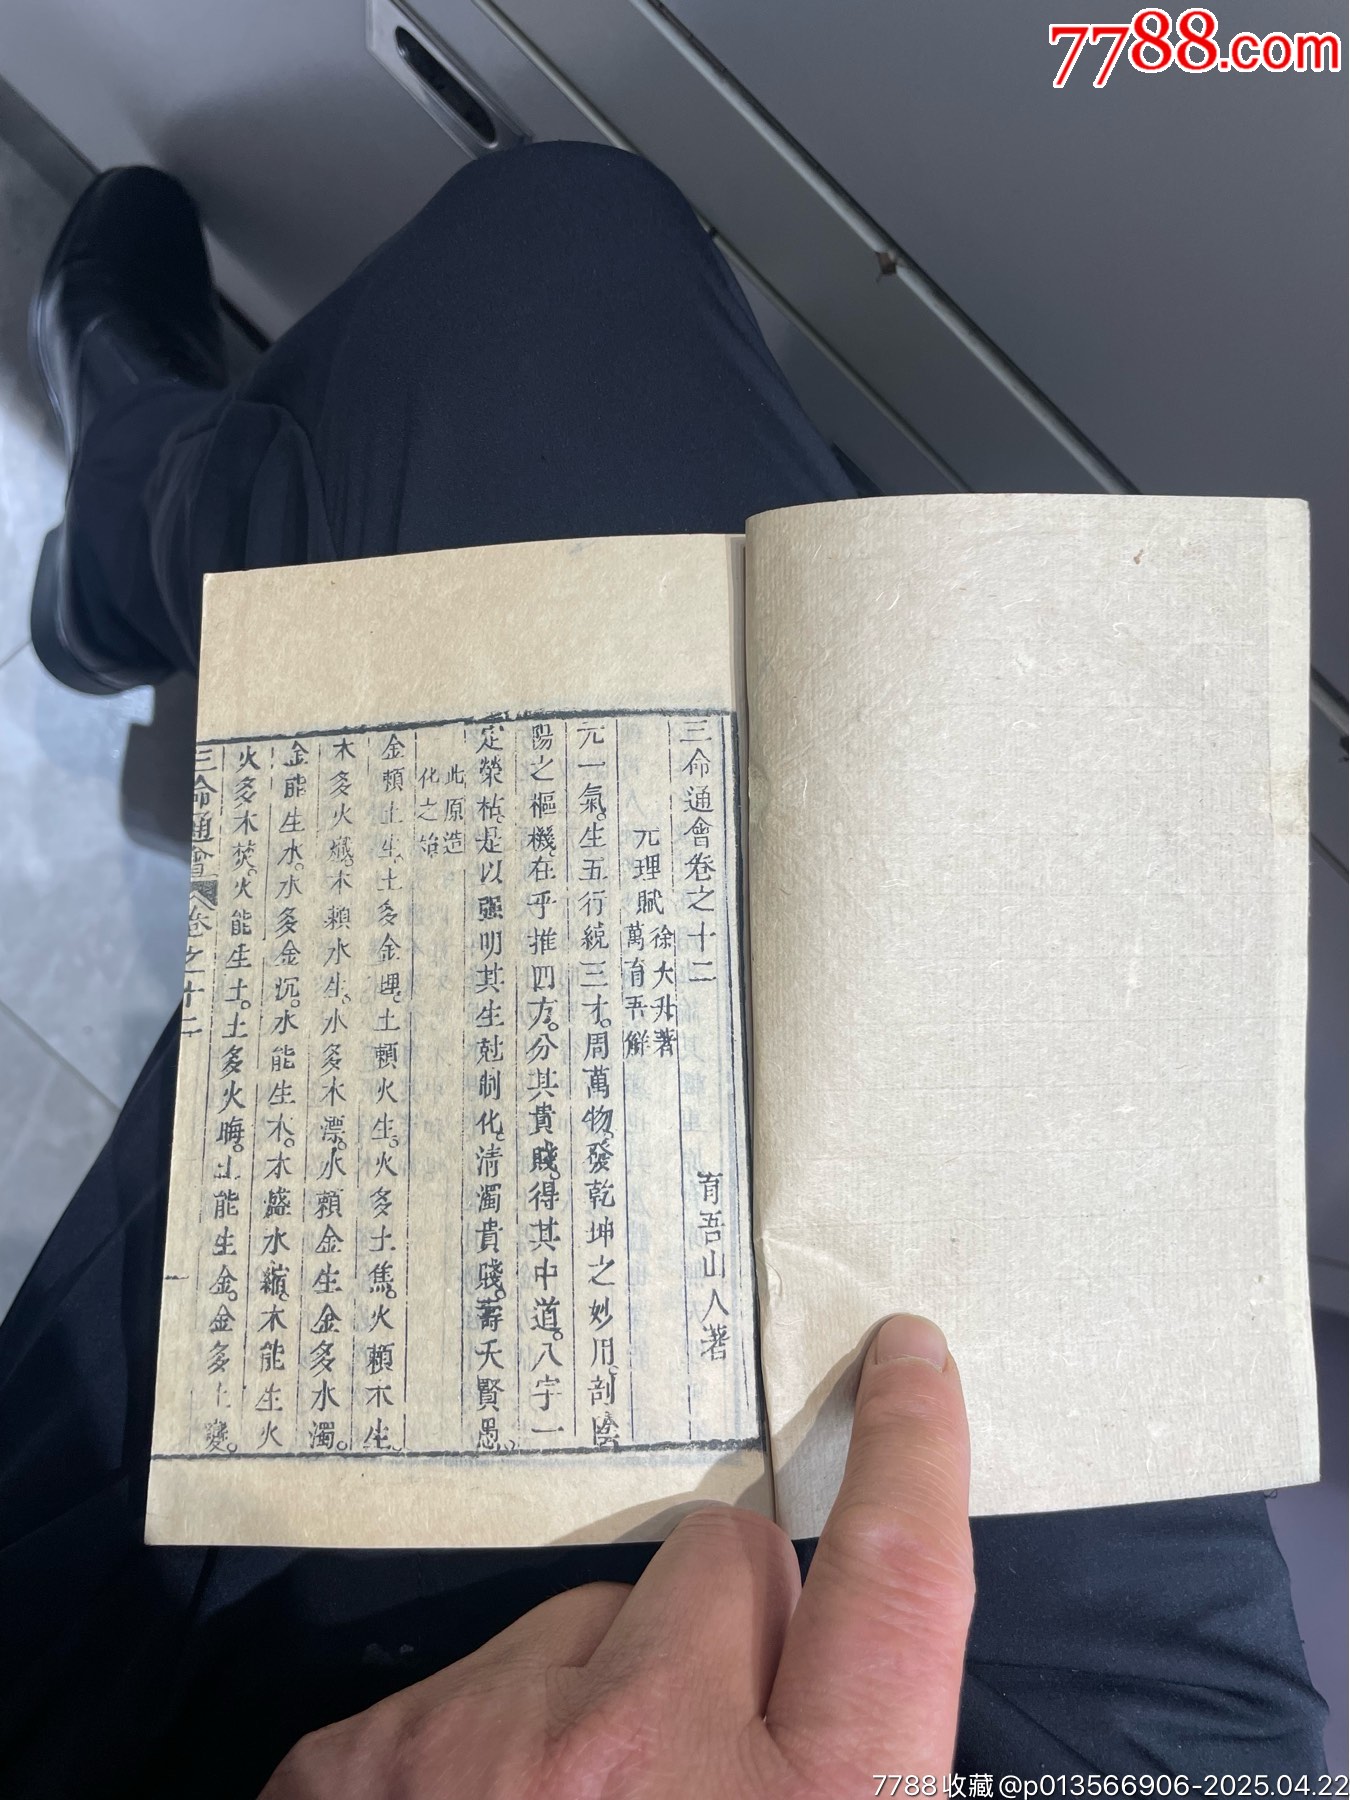 7788.com
三命通會卷之十二
育吾山人著
元理賦
徐大升著
萬育吾解
元一氣。生五行統三才。周萬物。發乾坤之妙用。剖陰
陽之樞機。在乎推四方。分其貴賤。得其中道。八字一
定榮枯。是以强明其生尅制化。清濁貴賤。壽夭賢愚。
此原造
化之始。
金賴土生。土多金埋。土賴火生。火多土焦。火賴木生。
木多火熾。木賴水生。水多木漂。水賴金生金多水濁。
金能生水。水多金沉。水能生木。木盛水縮。木能生火
火多木焚。火能生土。土多火晦。土能生金。金多土變。
三命通會
卷之十二
7788收藏@p013566906-2025.04.22